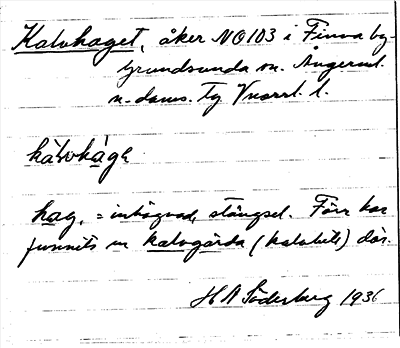 Kalvhaget, åker NO 103 i Finna by.
Grundsunda sn. Ångerml.
n. doms. Tg Vnorrl. l.
hag, = inhägnad, stängsel. Förr har
funnits en kalvgärda (kalvbete) där.
H A Söderberg 1936